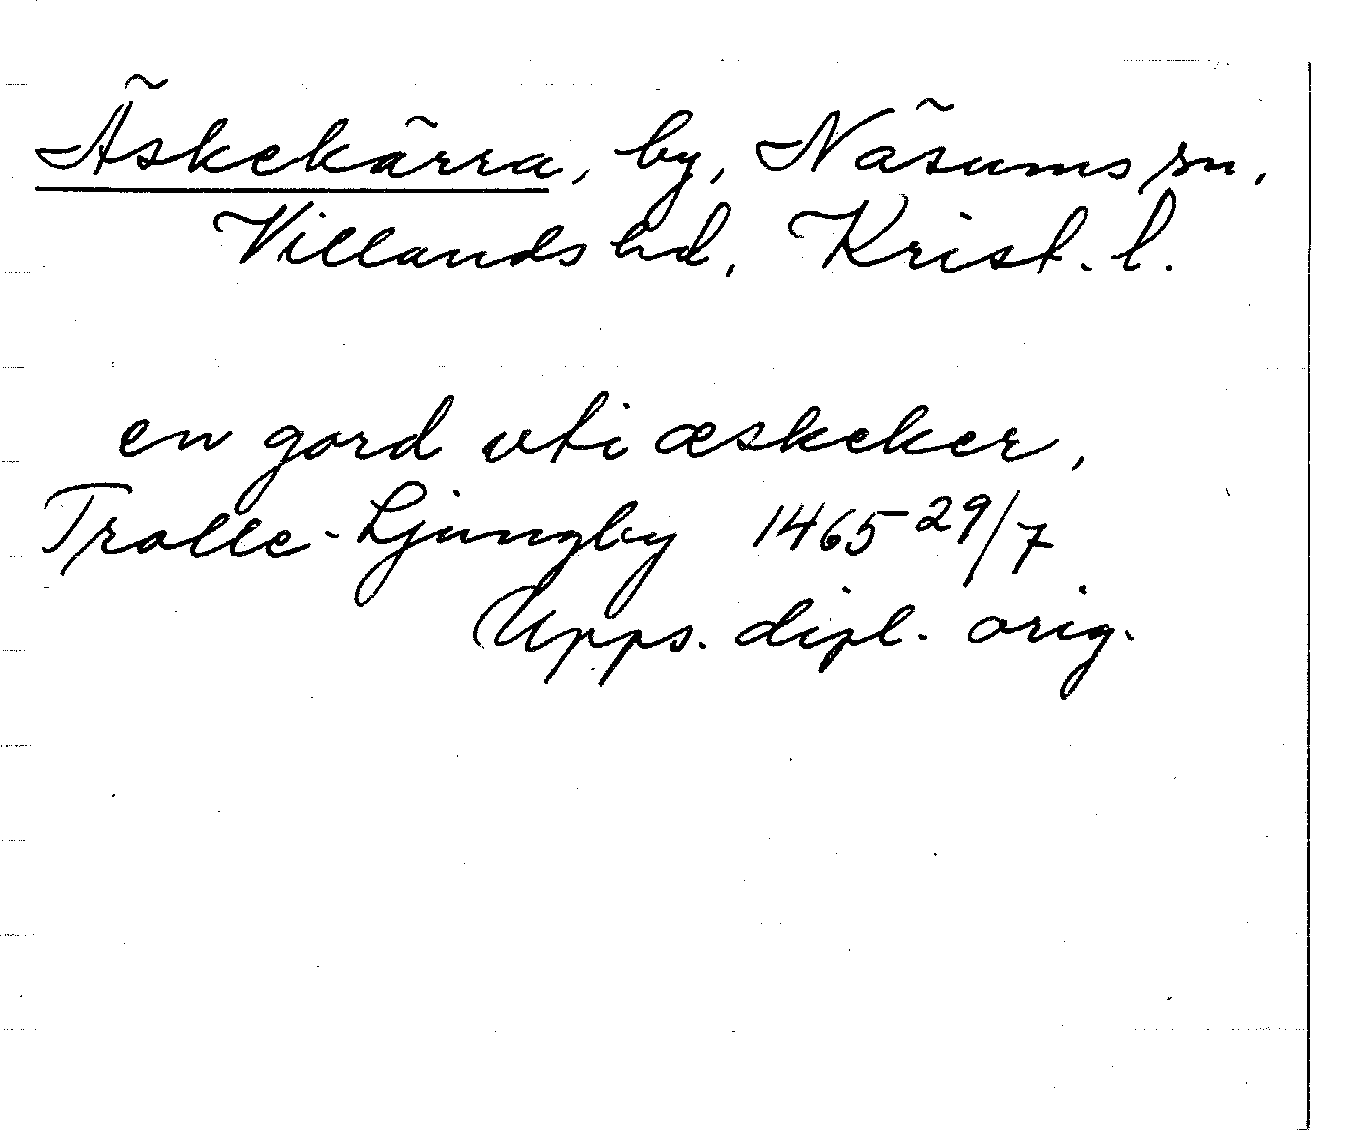 Äskekärra, by, Näsums sn,
Villands hd, Krist. l.
en gord vti æskeker,
Trolle-Ljungby 1465 29/7
Upps. dipl. orig.